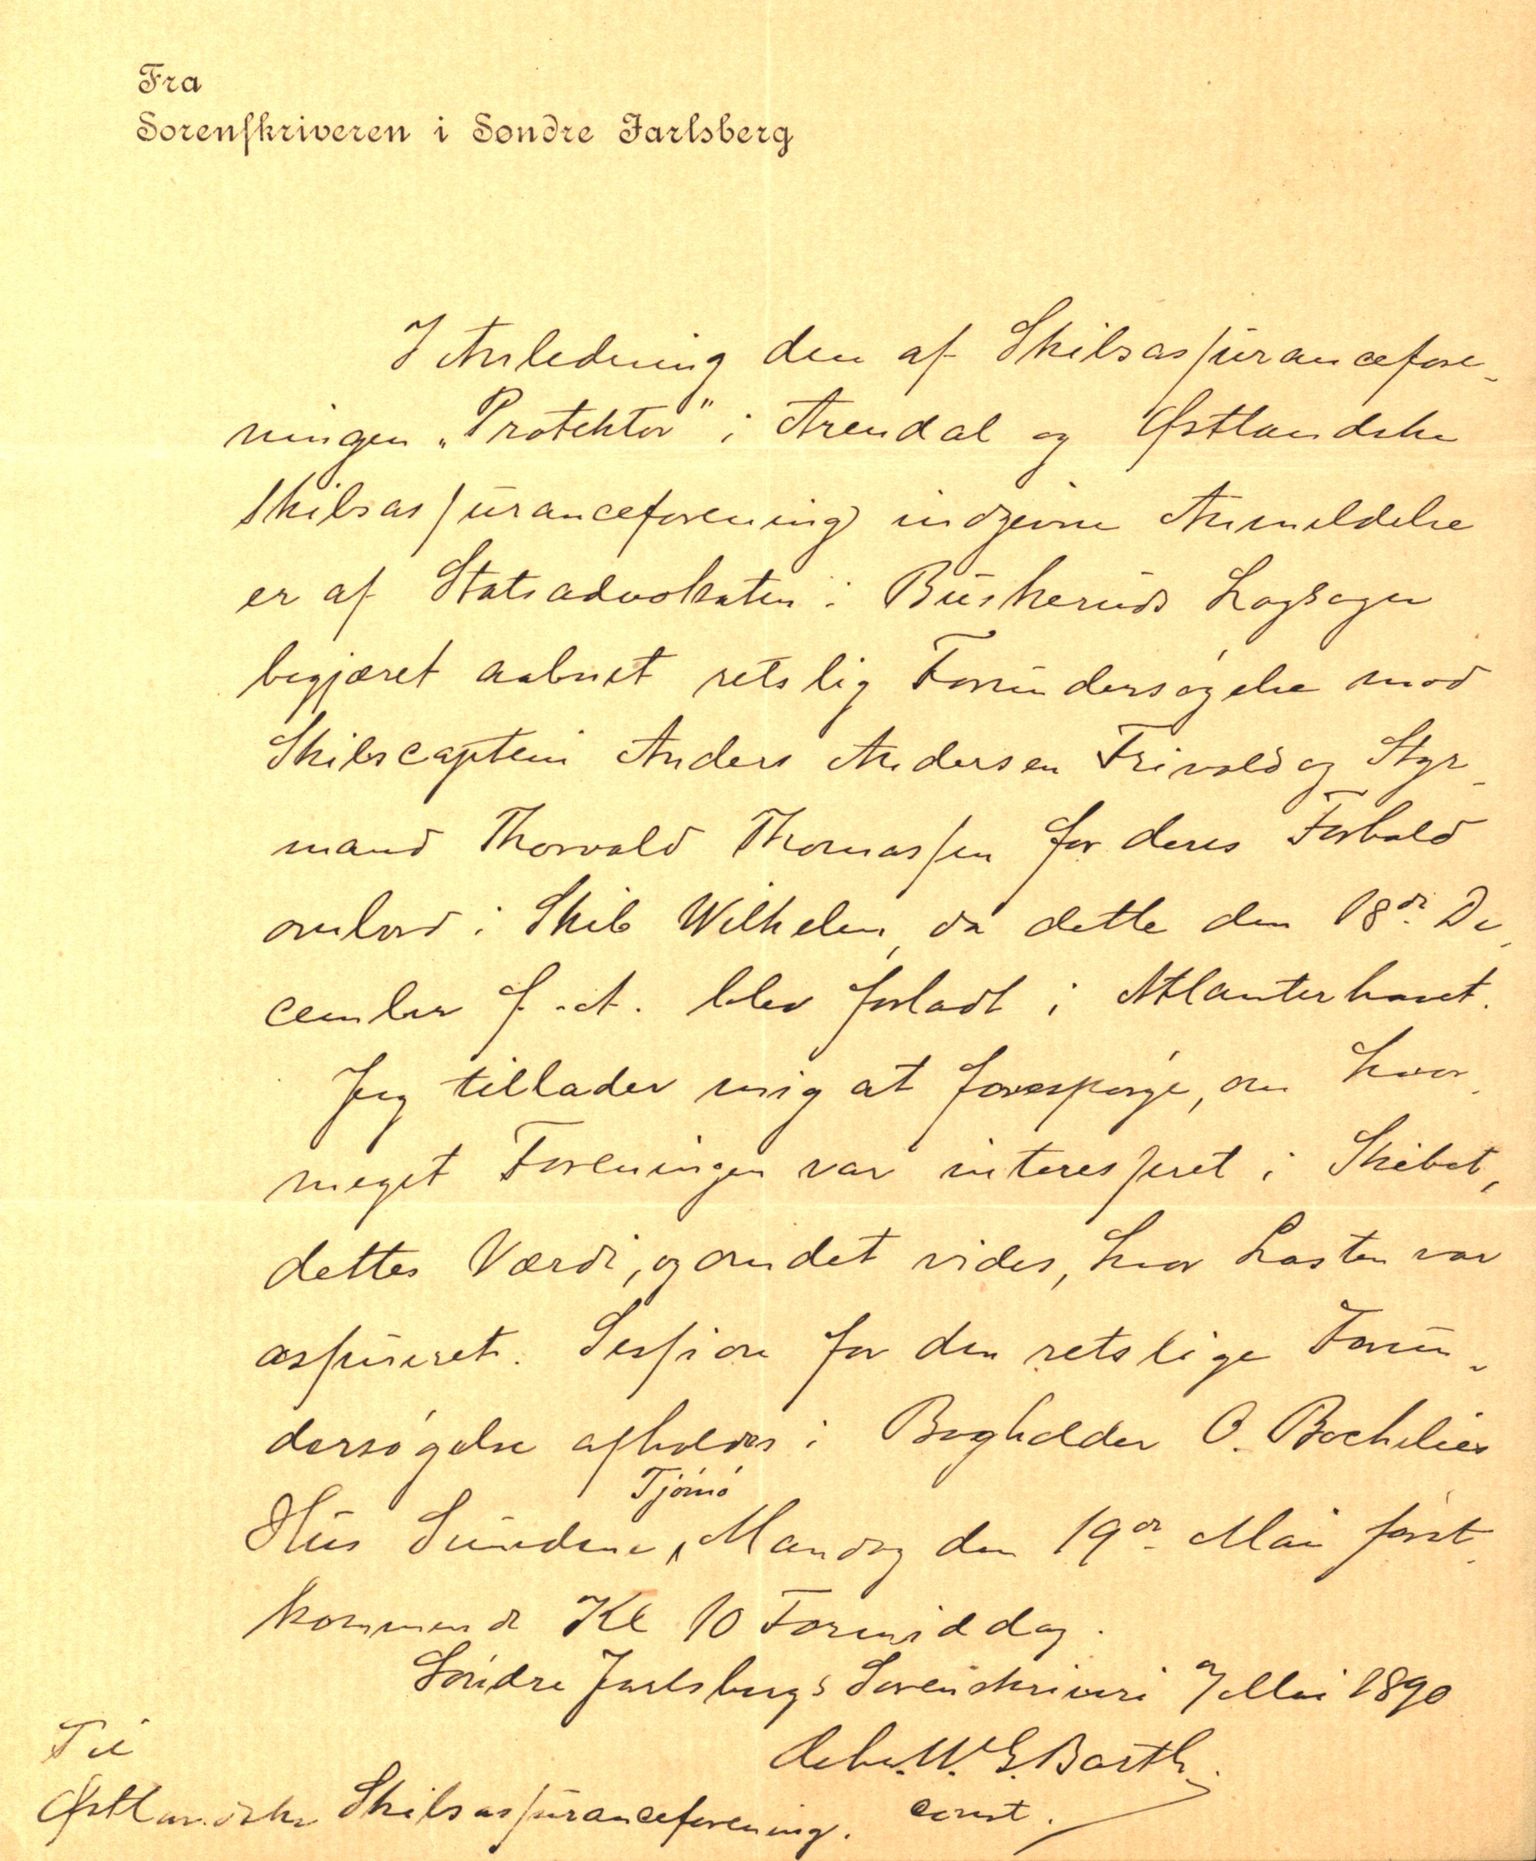 Fra
Sorenskriveren i Søndre Jarlsberg
I Anledning den af Skibsassurancefore-
ningen „Protektor" i Arendal og Østlandske
Skibsassuranceforening indgivne Anmeldelse
er af Statsadvokaten i Buskeruds Lagsogn
begjæret aabnet retslig Forundersøgelse mod
Skibscaptein Anders Andersen Frivold og Styr-
mand Thorvald Thomassen for deres Forhold
ombord i Skib Wilhelm, da dette den 18de De-
cember f. A. blev forladt i Atlanterhavet.
Jeg tillader mig at forespørge, om hvor-
meget Foreningen var interesseret i Skibet,
dettes Værdi, og om det vides, hvor Lasten var
assureret. Session for den retslige Forun-
dersøgelse afholdes i Bogholder O. Bachelies
Hus Sundene, Tjømø Mandag den 19de Mai først-
kommende Kl 10 Formiddag.
Søndre Jarlsbergs Sorenskriveri 7 Mai 1890
W. G. Barth
const.
Til
Østlandske Skibsassuranceforening.